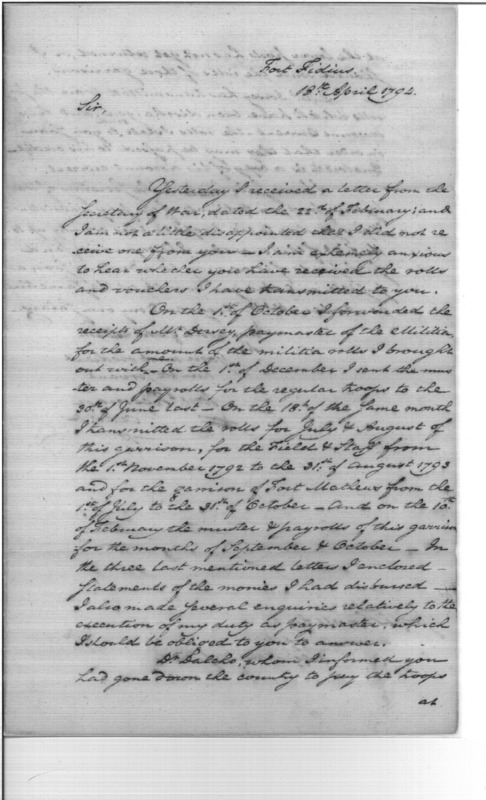 Fort Fidius,
18th April 1794.
Sir,
Yesterday I received a letter from the
Secretary of War, dated the 22d of February; and
I am not a little disappointed that I did not re
ceive one from you — I am extremely anxious
to hear whether you have received the rolls
and vouchers I have transmitted to you.
On the 1st of October I forwarded the
receipts of Mr Dorsey, paymaster of the Militia,
for the amount of the militia rolls I brought
out with — On the 1st of December I sent the mus
ter and payrolls for the regular troops to the
30th of June last — On the 18th of the same month
I transmitted the rolls for July & August of
this garrison, for the Field & Staff from
the 1st November 1792 to the 31st of August 1793
and for the garrison of Fort Mathews from the
1st of July to the 31st of October — And on the 10th
of February the muster & payrolls of this garrison
for the months of September & October — In
the three last mentioned letters I enclosed
statements of the monies I had disbursed —
I also made several enquiries relatively to the
execution of my duty as paymaster, which
I should be obliged to you to answer.
Dr Dalcho, whom I informed you
had gone down the county to pay the troops
at